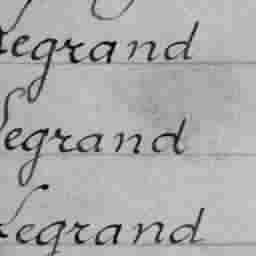 Legrand
Legrand
Legrand